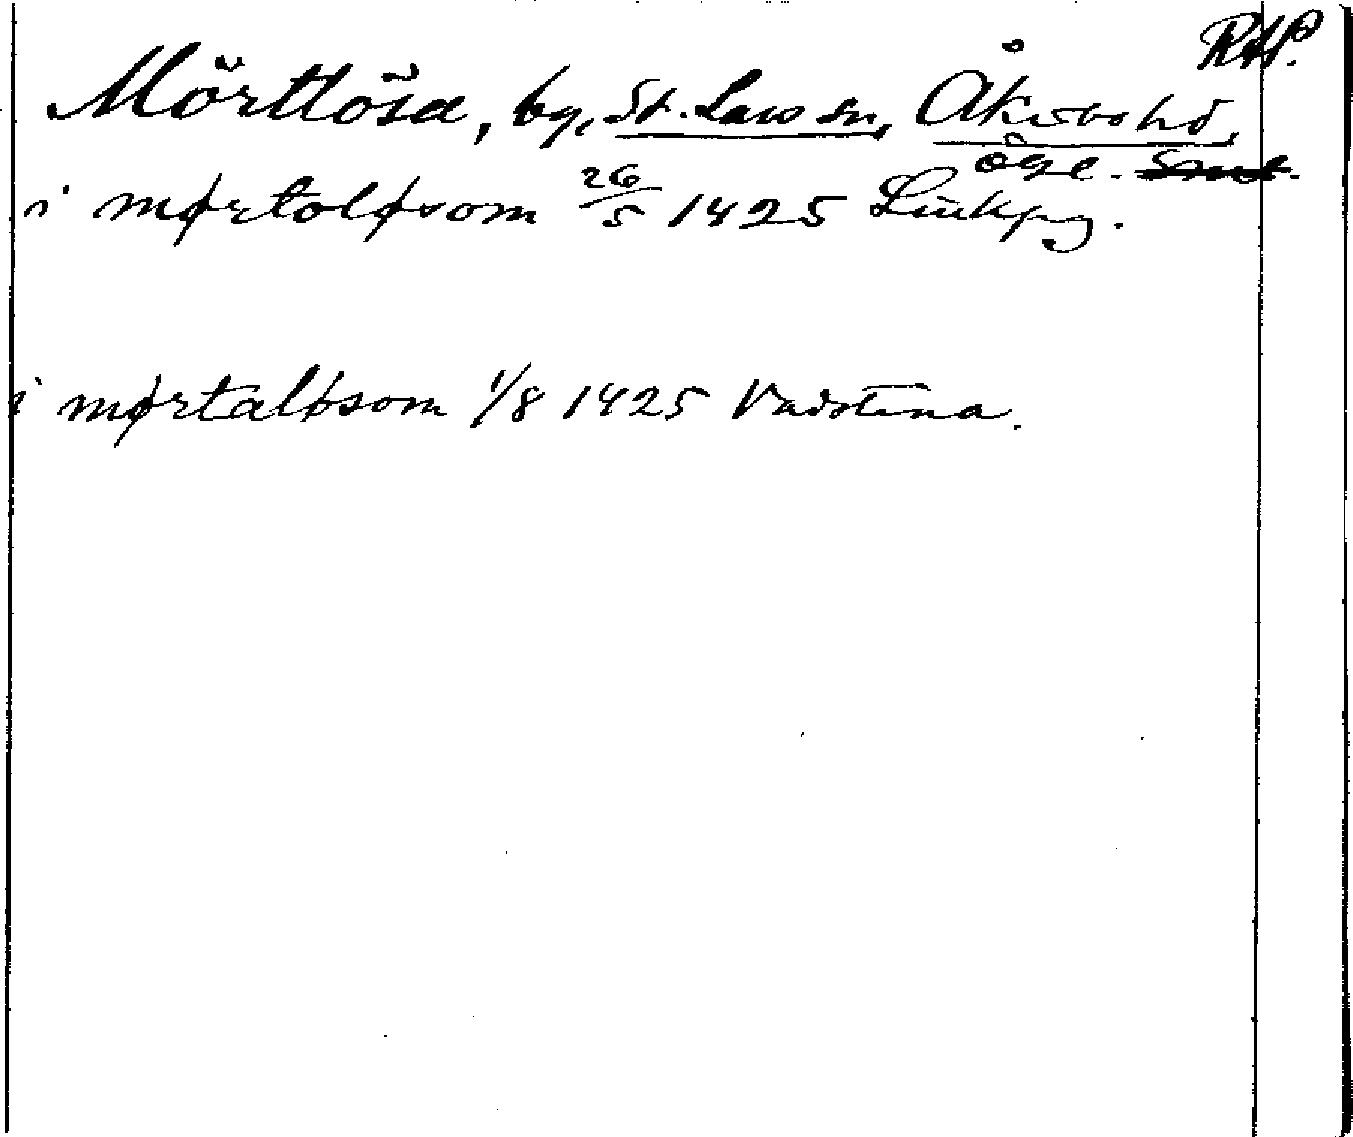 RAP.
Mörtlösa, by, St. Lars sn, Åkerbo hd,
ögl. Smål.
i mørtoløsom 26/5 1425 Linkpg.
i mørtaløsom 1/8 1425 Vadstena.